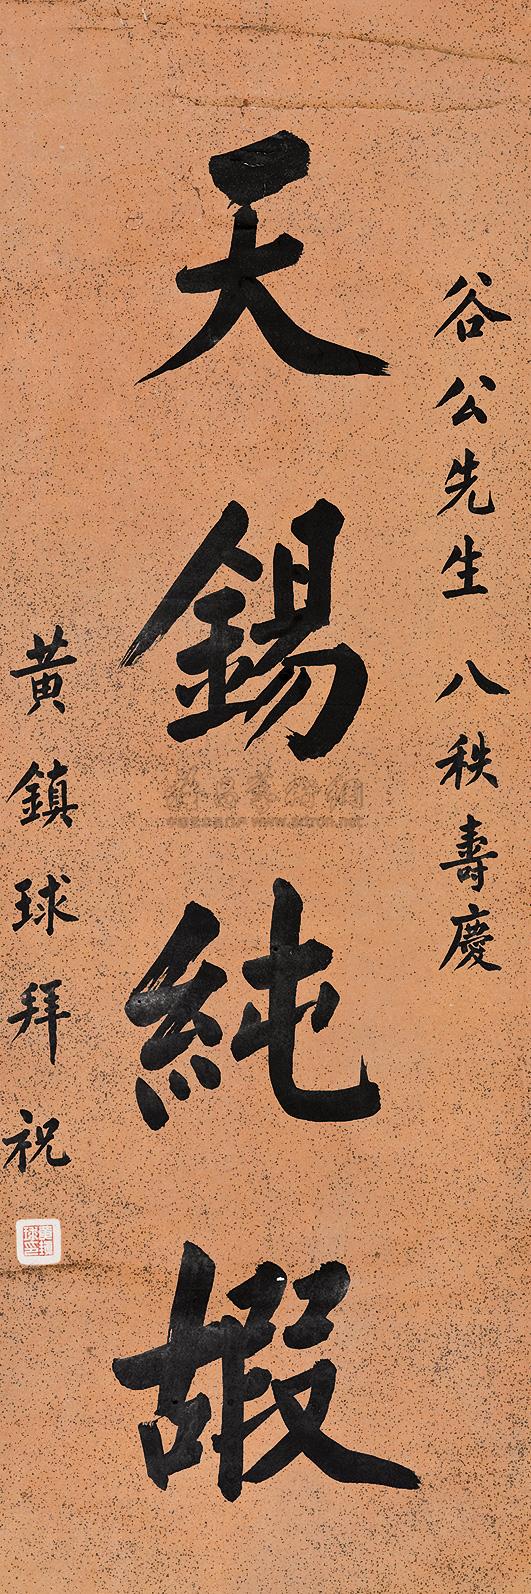 谷公先生 八秩壽慶
天錫純嘏
黃鎮球拜祝